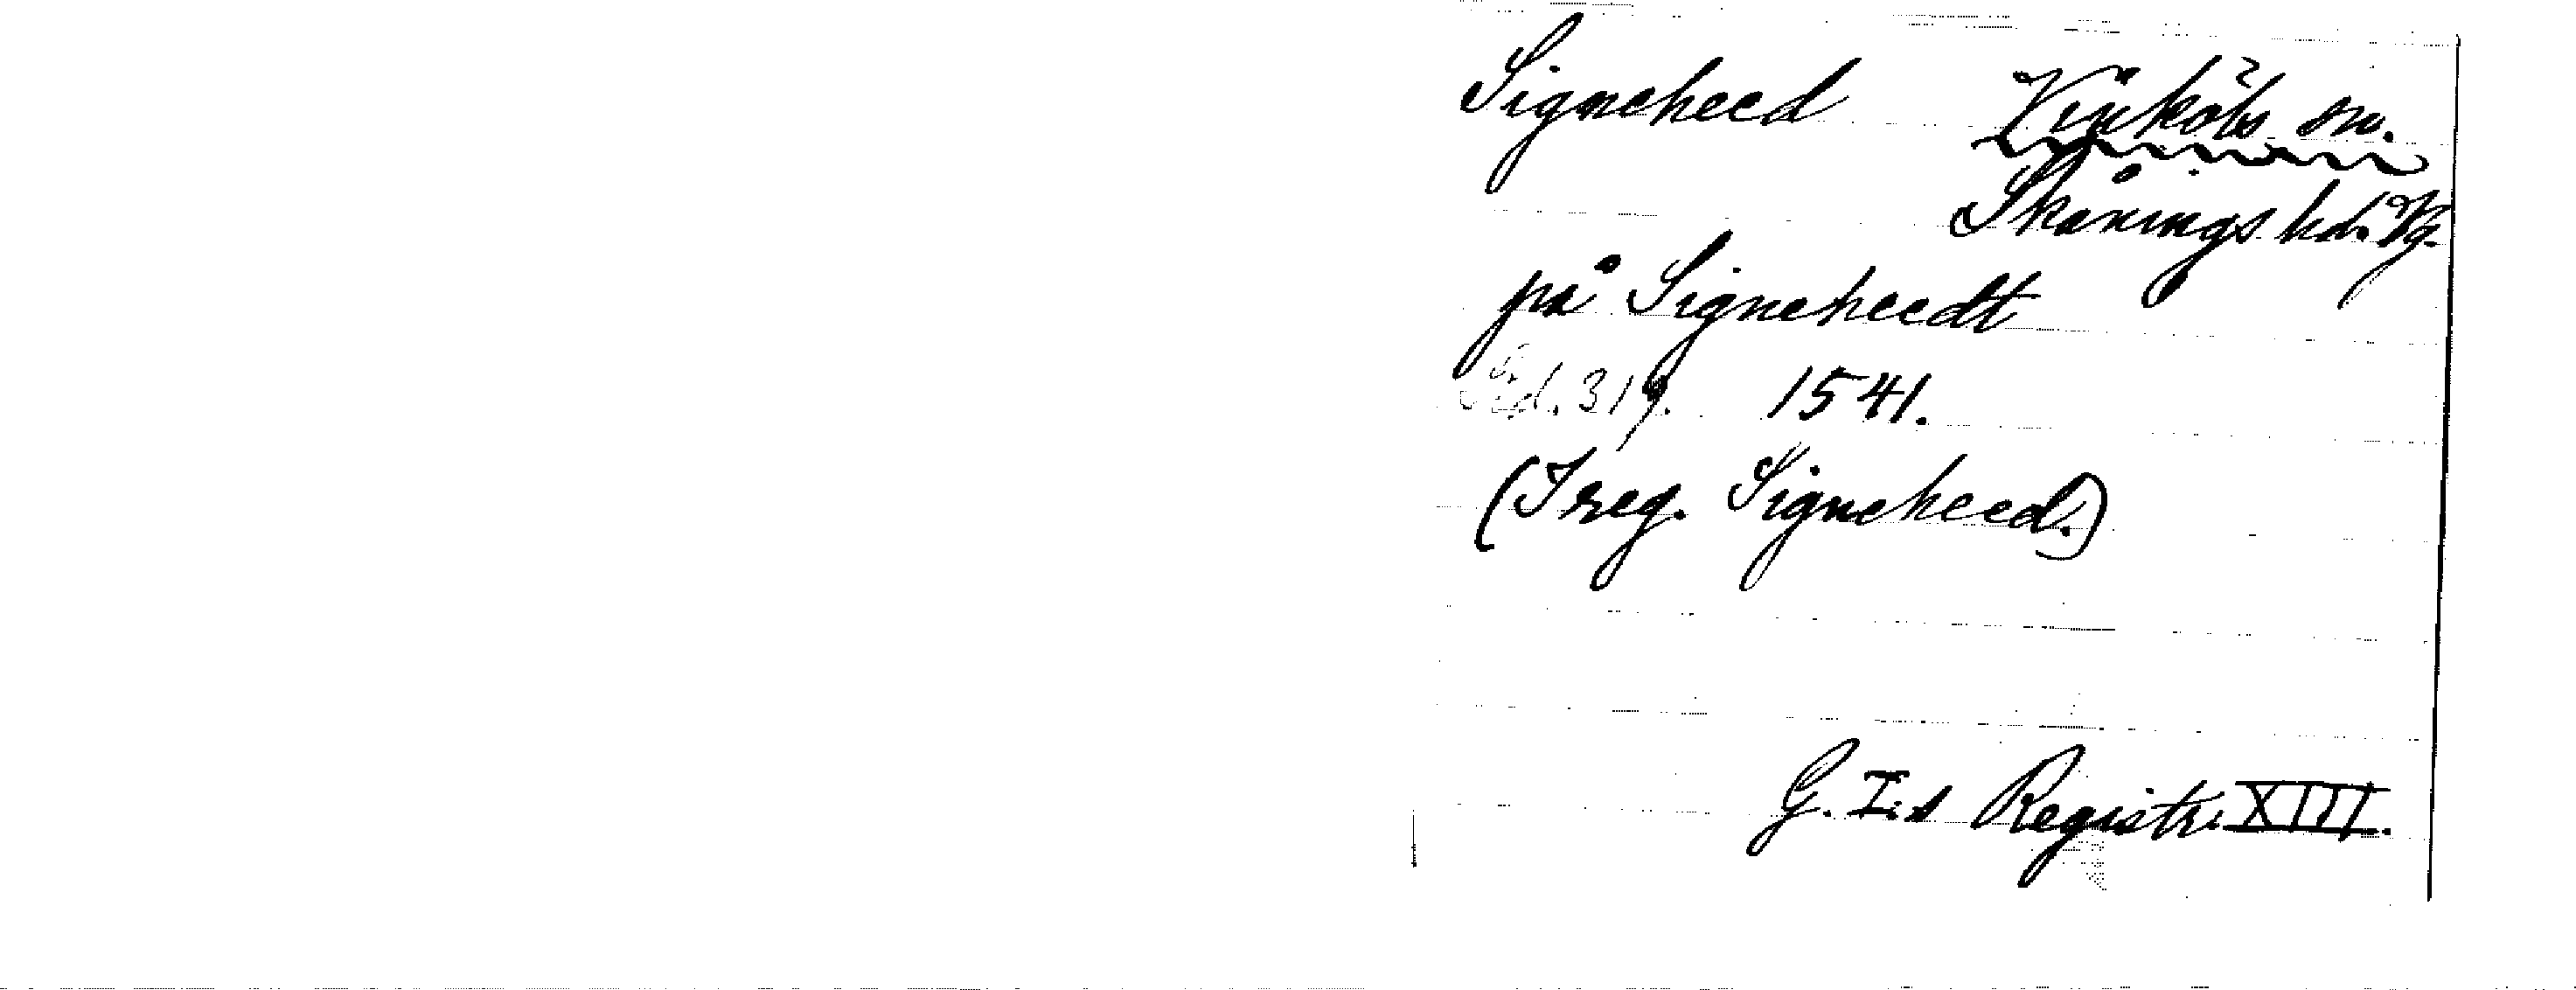 Signeheed Vinköls sn.
Skånings hd. Vg.
på Signeheedt
Sid. 319. 1541.
(I reg. Signeheed.)
G. I:s Registr. XIII.